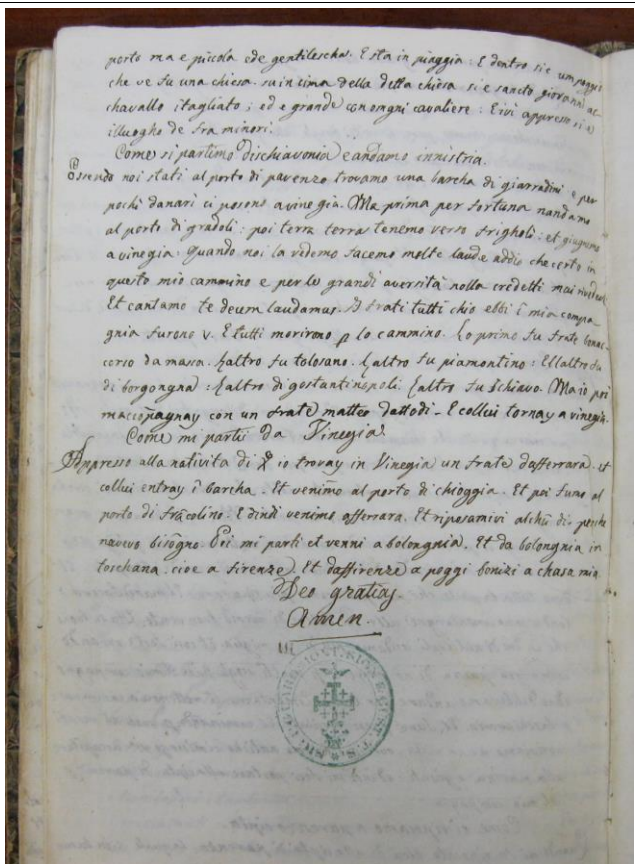 porto ma e piccola ede gentilescha. E sta in piaggia: E dentro si e um poggi
che ve fu una chiesa. su in cima della detta chiesa si e sancto giovanni ac
chavallo itagliato; ed e grande con ongni cavaliere: E ivi appresso si e
illuogho de fra minori.
Come si partimo dischiavonia e andamo innistria.
Essendo noi stati al porto di parenzo trovamo una barcha di giarradini e per
pochi danari ci posono a vinegia. Ma prima per fortuna nandamo
al porto di gradoli: poi terra terra tenemo verso frigholi: et giugnemo
a vinegia quando noi la vedemo facemo molte laude addio che certo in
questo mio cammino e per le grandi aversità nolla credetti mai rivedere
Et cantamo te deum laudamus. I frati tutti chio ebbi i mia compa
gnia furono v. E tutti morirono p lo cammino. Lo primo fu frate bonac
corso da massa. Laltro fu tolosano. Laltro fu piamontino: Ellaltro fu
di borgongna: Laltro di gostantinopoli. Laltro fu schiavo. Ma io poi
maccompagnay con un frate matteo dattodi. E collui tornay a vinegia.
Come mi parti da Vinegia.
Appresso alla nativita di Xp̄o io trovay in Vinegia un frate dafferrara. et
collui entray ī barcha. Et venimo al porto di chioggia. Et poi fumo al
porto di fracolino: E dindi venimo afferrara. Et riposamivi alchū di perche
navevo bisogno. Poi mi parti et venni a bolongnia. Et da bolongnia in
toschana. cioe a firenze. Et daffirenze a poggi bonizi a chasa mia
Deo gratias.
Amen.